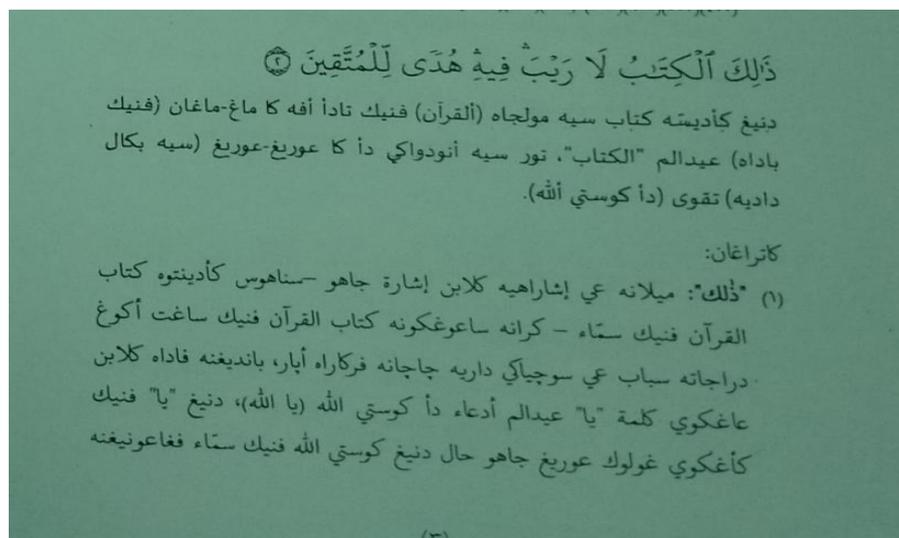 ذَٰلِكَ ٱلْكِتَٰبُ لَا رَيْبَ ۛ فِيهِ هُدًى لِّلْمُتَّقِينَ ۝٢
دنيڠ كأديسّه كتاب سيه مولجاه (ألقرآن) فنيك تادأ أفه كا ماغ-ماغان (فنيك
باداه) عيدالم "الكتاب"، تور سيه أنودواكي دأ كا عوريغ-عوريغ (سيه بكال
داديه) تقوى (دأ كوستي ألله).
كاتراغان:
(١) "ذٰلك": ميلانه عي إشاراهيه كلابن إشارة جاهو –سناهوس كأدينتوه كتاب
القرآن فنيك سمّاء – كرانه ساعوغكونه كتاب القرآن فنيك ساغت أكوغ
دراجاته سباب عي سوچياكي داريه چاچانه فركاراه أپار، بانديغنه فاداه كلابن
عاغكوي كلمة "يا" عيدالم أدعاء دأ كوستي الله (يا الله)، دنيغ "يا" فنيك
كأغكوي غولوك عوريغ جاهو حال دنيغ كوستي الله فنيك سمّاء فغاعونيغنه
(٣)